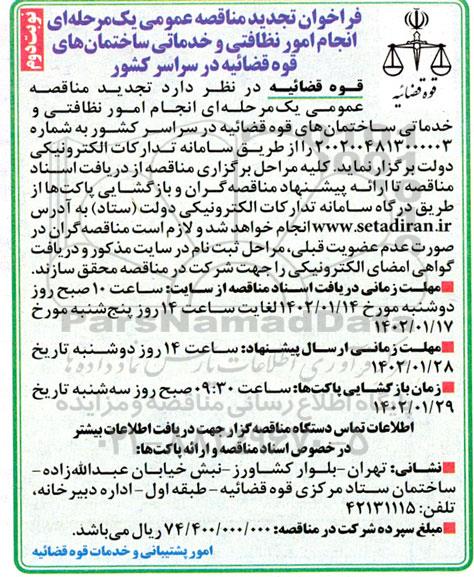 نوبت دوم
فراخوان تجدید مناقصه عمومی یک‌مرحله‌ای
انجام امور نظافتی و خدماتی ساختمان‌های
قوه قضائیه در سراسر کشور
قوه قضائیه
قوه قضائیه در نظر دارد تجدید مناقصه
عمومی یک‌مرحله‌ای انجام امور نظافتی و
خدماتی ساختمان‌های قوه قضائیه در سراسر کشور به شماره
۲۰۰۲۰۰۴۸۱۳۰۰۰۰۰۳ را از طریق سامانه تدارکات الکترونیکی
دولت برگزار نماید. کلیه مراحل برگزاری مناقصه از دریافت اسناد
مناقصه تا ارائه پیشنهاد مناقصه‌گران و بازگشایی پاکت‌ها از
طریق درگاه سامانه تدارکات الکترونیکی دولت (ستاد) به آدرس
www.setadiran.ir انجام خواهد شد و لازم است مناقصه‌گران در
صورت عدم عضویت قبلی، مراحل ثبت نام در سایت مذکور و دریافت
گواهی امضای الکترونیکی را جهت شرکت در مناقصه محقق سازند.
مهلت زمانی دریافت اسناد مناقصه از سایت: ساعت ۱۰ صبح روز
دوشنبه مورخ ۱۴۰۲/۰۱/۱۴ لغایت ساعت ۱۴ روز پنج‌شنبه مورخ
۱۴۰۲/۰۱/۱۷
مهلت زمانی ارسال پیشنهاد: ساعت ۱۴ روز دوشنبه تاریخ
۱۴۰۲/۰۱/۲۸
زمان بازگشایی پاکت‌ها: ساعت ۰۹:۳۰ صبح روز سه‌شنبه تاریخ
۱۴۰۲/۰۱/۲۹
اطلاعات تماس دستگاه مناقصه گزار جهت دریافت اطلاعات بیشتر
در خصوص اسناد مناقصه و ارائه پاکت‌ها:
نشانی: تهران-بلوار کشاورز-نبش خیابان عبدالله‌زاده-
ساختمان ستاد مرکزی قوه قضائیه-طبقه اول-اداره دبیرخانه،
تلفن: ۴۲۱۳۱۱۱۵
مبلغ سپرده شرکت در مناقصه: ۷۴/۴۰۰/۰۰۰/۰۰۰ ریال می‌باشد.
امور پشتیبانی و خدمات قوه قضائیه
ParsNamadData